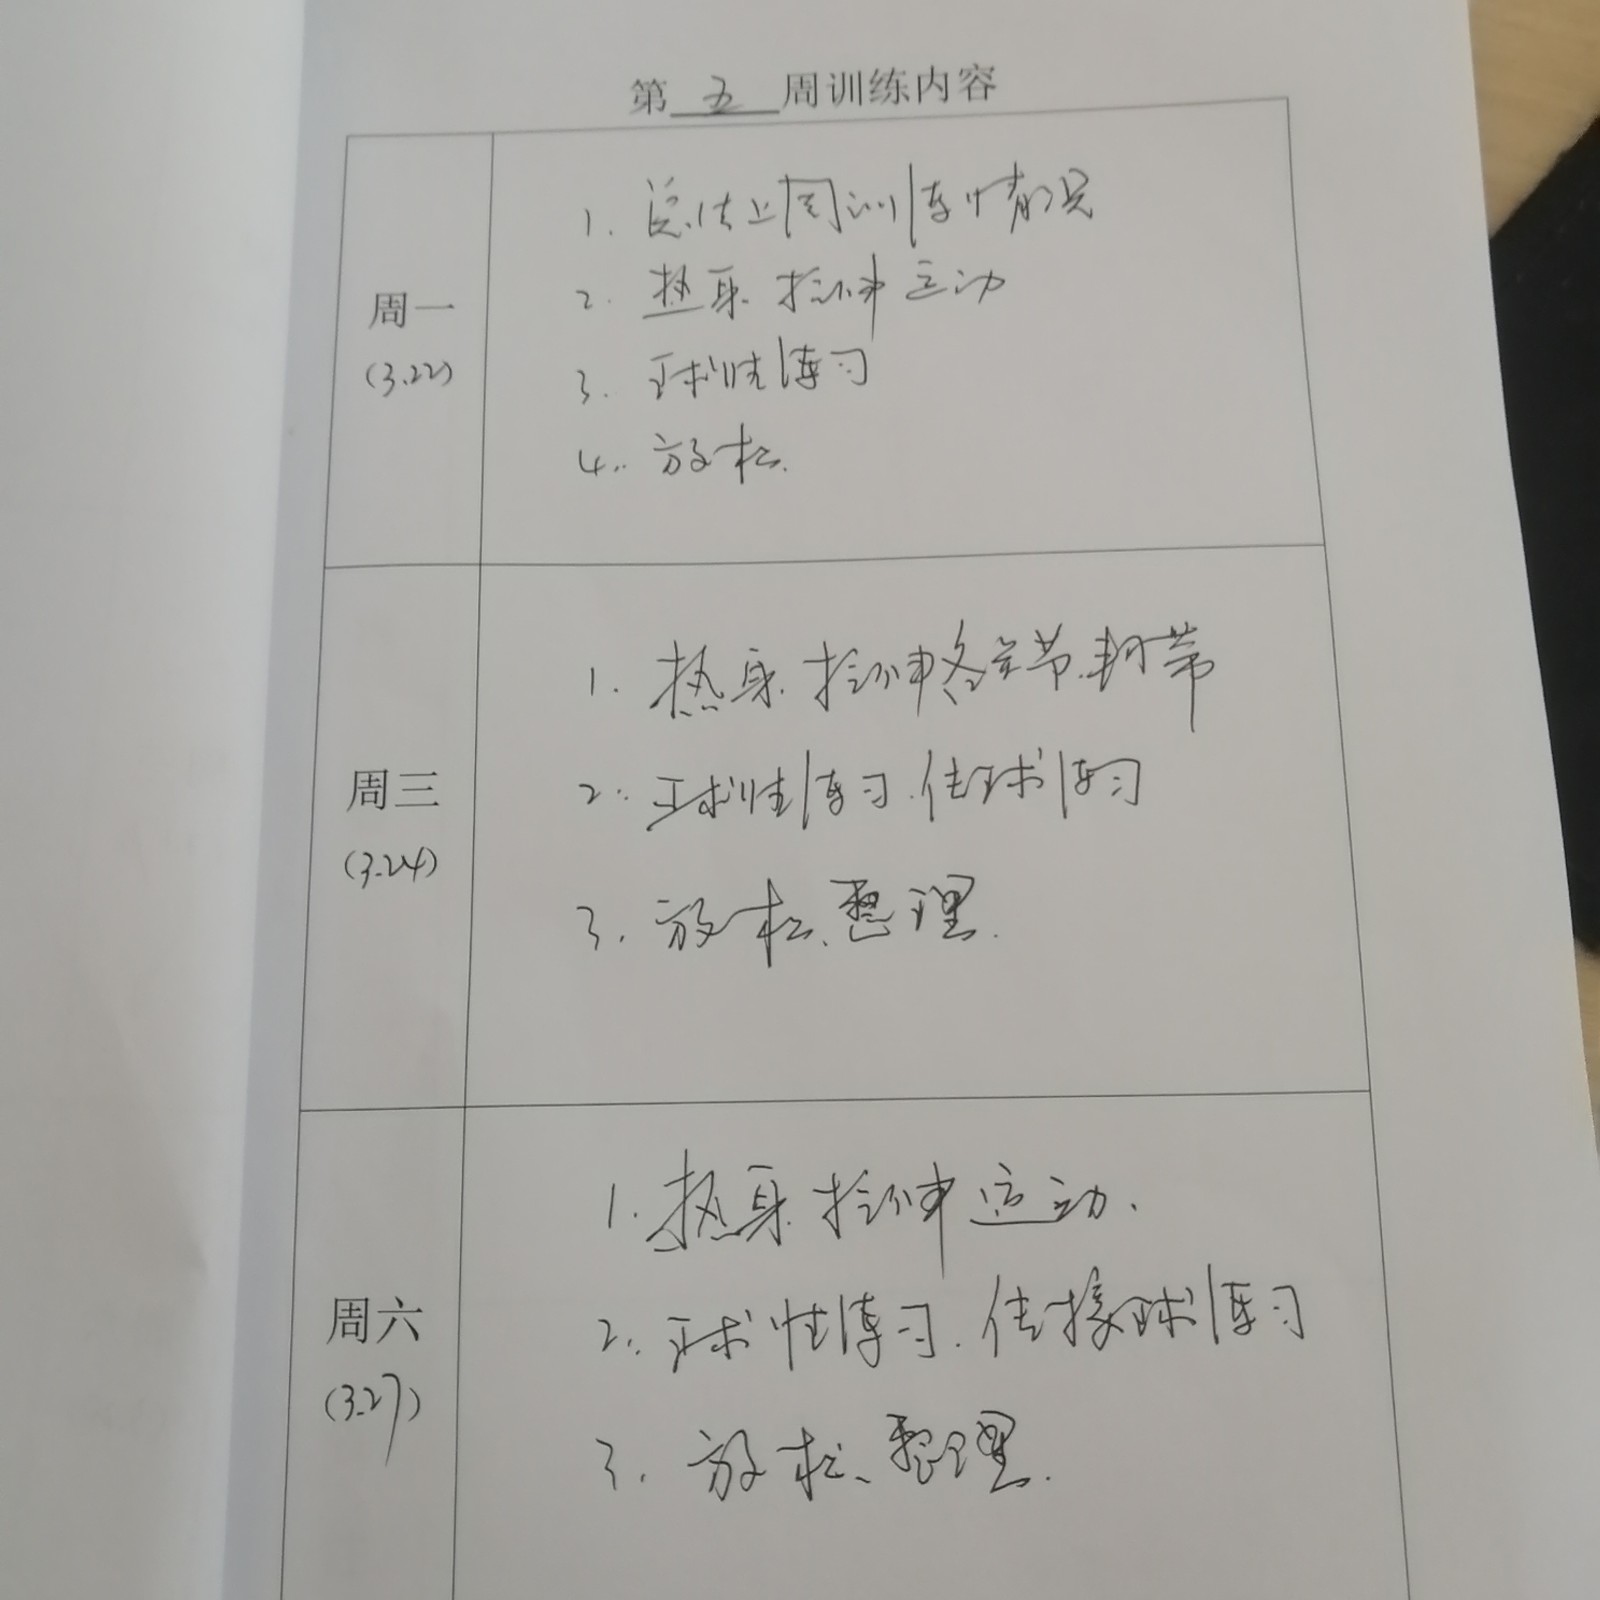 第五周训练内容
周一
(3.22)
1. 总结上周训练情况
2. 热身 拉伸运动
3. 球性练习
4. 放松.
周三
(3.24)
1. 热身.拉伸各关节.韧带
2. 球性练习.传球练习
3. 放松、整理.
周六
(3.27)
1. 热身.拉伸运动.
2. 球性练习.传接球练习
3. 放松、整理.